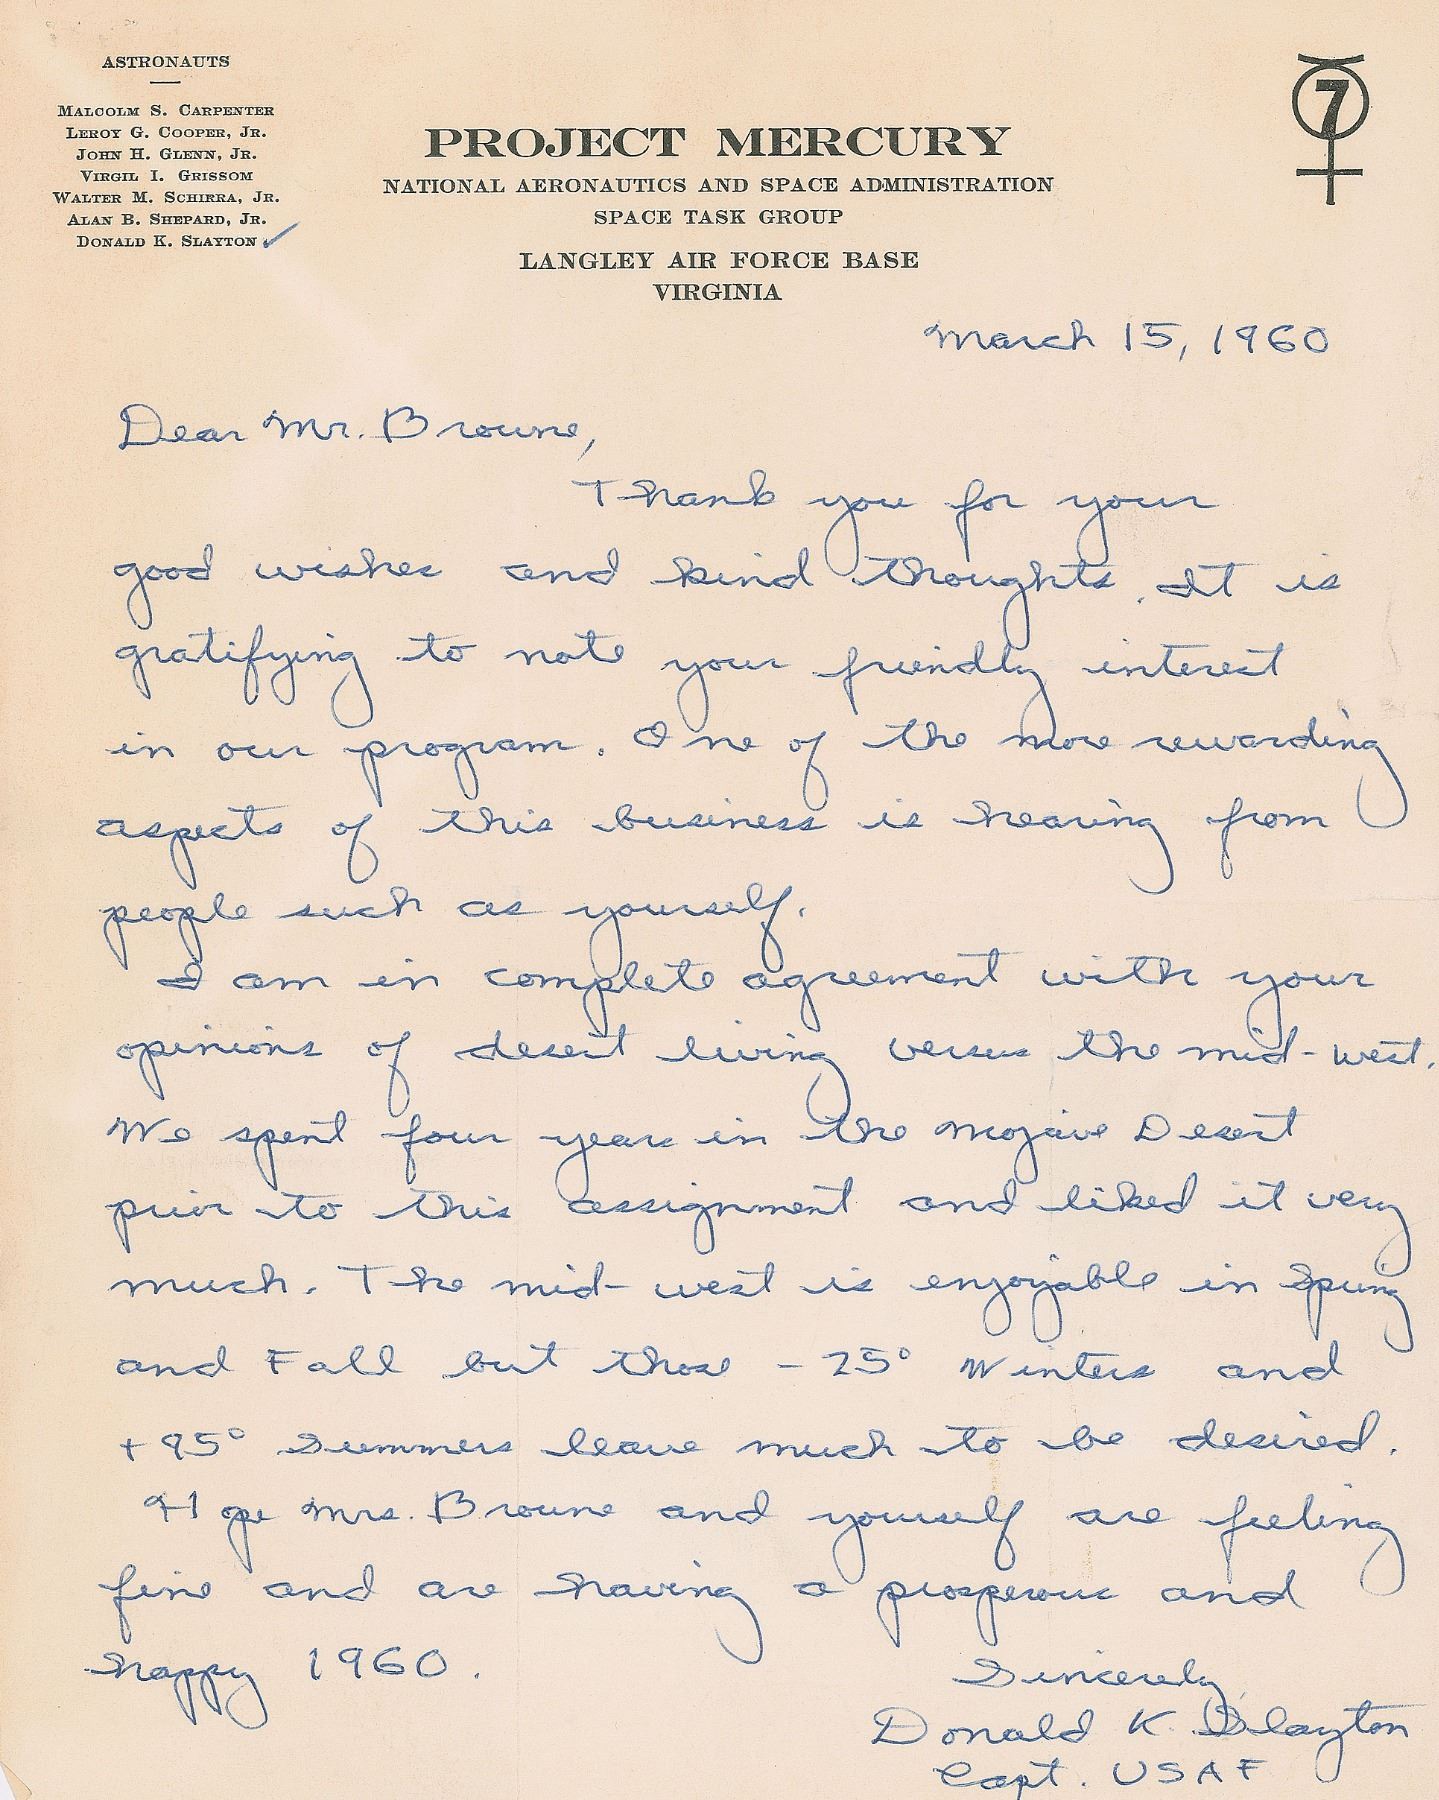 ASTRONAUTS
MALCOLM S. CARPENTER
LEROY G. COOPER, JR.
JOHN H. GLENN, JR.
VIRGIL I. GRISSOM
WALTER M. SCHIRRA, JR.
ALAN B. SHEPARD, JR.
DONALD K. SLAYTON
7
PROJECT MERCURY
NATIONAL AERONAUTICS AND SPACE ADMINISTRATION
SPACE TASK GROUP
LANGLEY AIR FORCE BASE
VIRGINIA
March 15, 1960
Dear Mr. Browne,
Thank you for your
good wishes and kind thoughts. It is
gratifying to note your friendly interest
in our program. One of the more rewarding
aspects of this business is hearing from
people such as yourself.
I am in complete agreement with your
opinions of desert living versus the mid-west.
We spent four years in the Mojave Desert
prior to this assignment and liked it very
much. The mid-west is enjoyable in Spring
and Fall but those -25° Winters and
+95° Summers leave much to be desired.
Hope Mrs. Browne and yourself are feeling
fine and are having a prosperous and
happy 1960.
Sincerely,
Donald K. Slayton
Capt. USAF